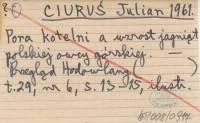 ?
CIURUŚ Julian 1961.
Pora kotelni a wzrost jagniąt
polskiej owcy górskiej. —
Przegląd Hodowlany (
t. 29, nr 6, s. 13-15, ilustr.